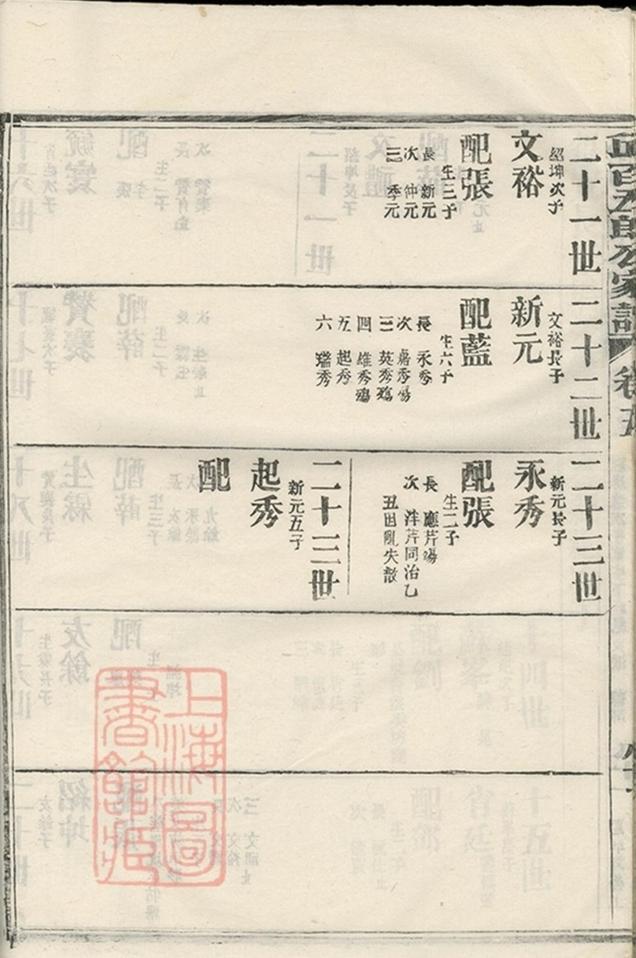 邱百九郎公家譜
卷
二十一世
文裕
紹坤次子
配張
生三子
長 新元
次 仲元
三 季元
二十二世
新元
文裕長子
配藍
生六子
長 永秀
次 秀殤
三 英秀殤
四 雄秀殤
五 起秀
六 瑞秀
二十三世
永秀
新元長子
配張
生二子
長 應芹殤
次 泮芹同治乙
丑因亂失散
二十三世
起秀
新元五子
配
上海圖
書館藏